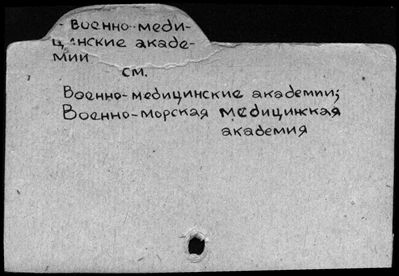 Военно-меди-
цинские акаде-
мии
см.
Военно-медицинские академии;
Военно-морская медицинская
академия